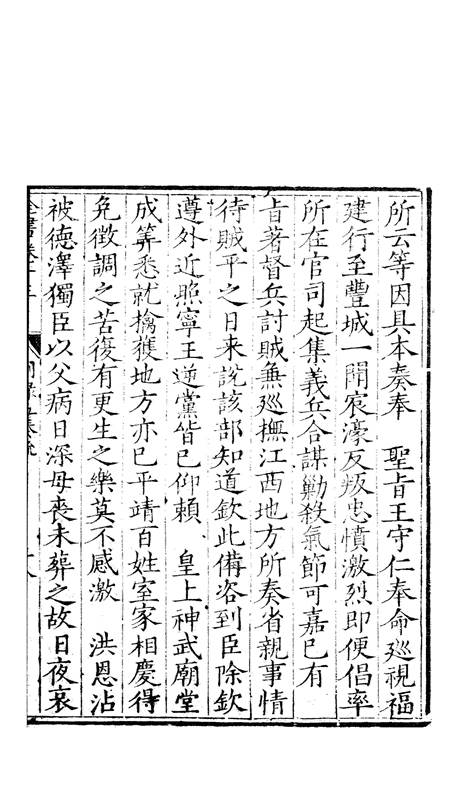 所云等因具本奏奉　聖旨王守仁奉命廵視福
建行至豐城一聞宸濠反叛忠憤激烈即便倡率
所在官司起集義兵合謀勦殺氣節可嘉已有
旨著督兵討賊兼廵撫江西地方所奏省親事情
待賊平之日来說該部知道欽此備咨到臣除欽
遵外近照寧王逆黨皆已仰頼　皇上神武廟堂
成筭悉就擒獲地方亦已平靖百姓室家相慶得
免徴調之苦復有更生之樂莫不感激　洪恩沾
被德澤獨臣以父病日深母喪未葬之故日夜哀